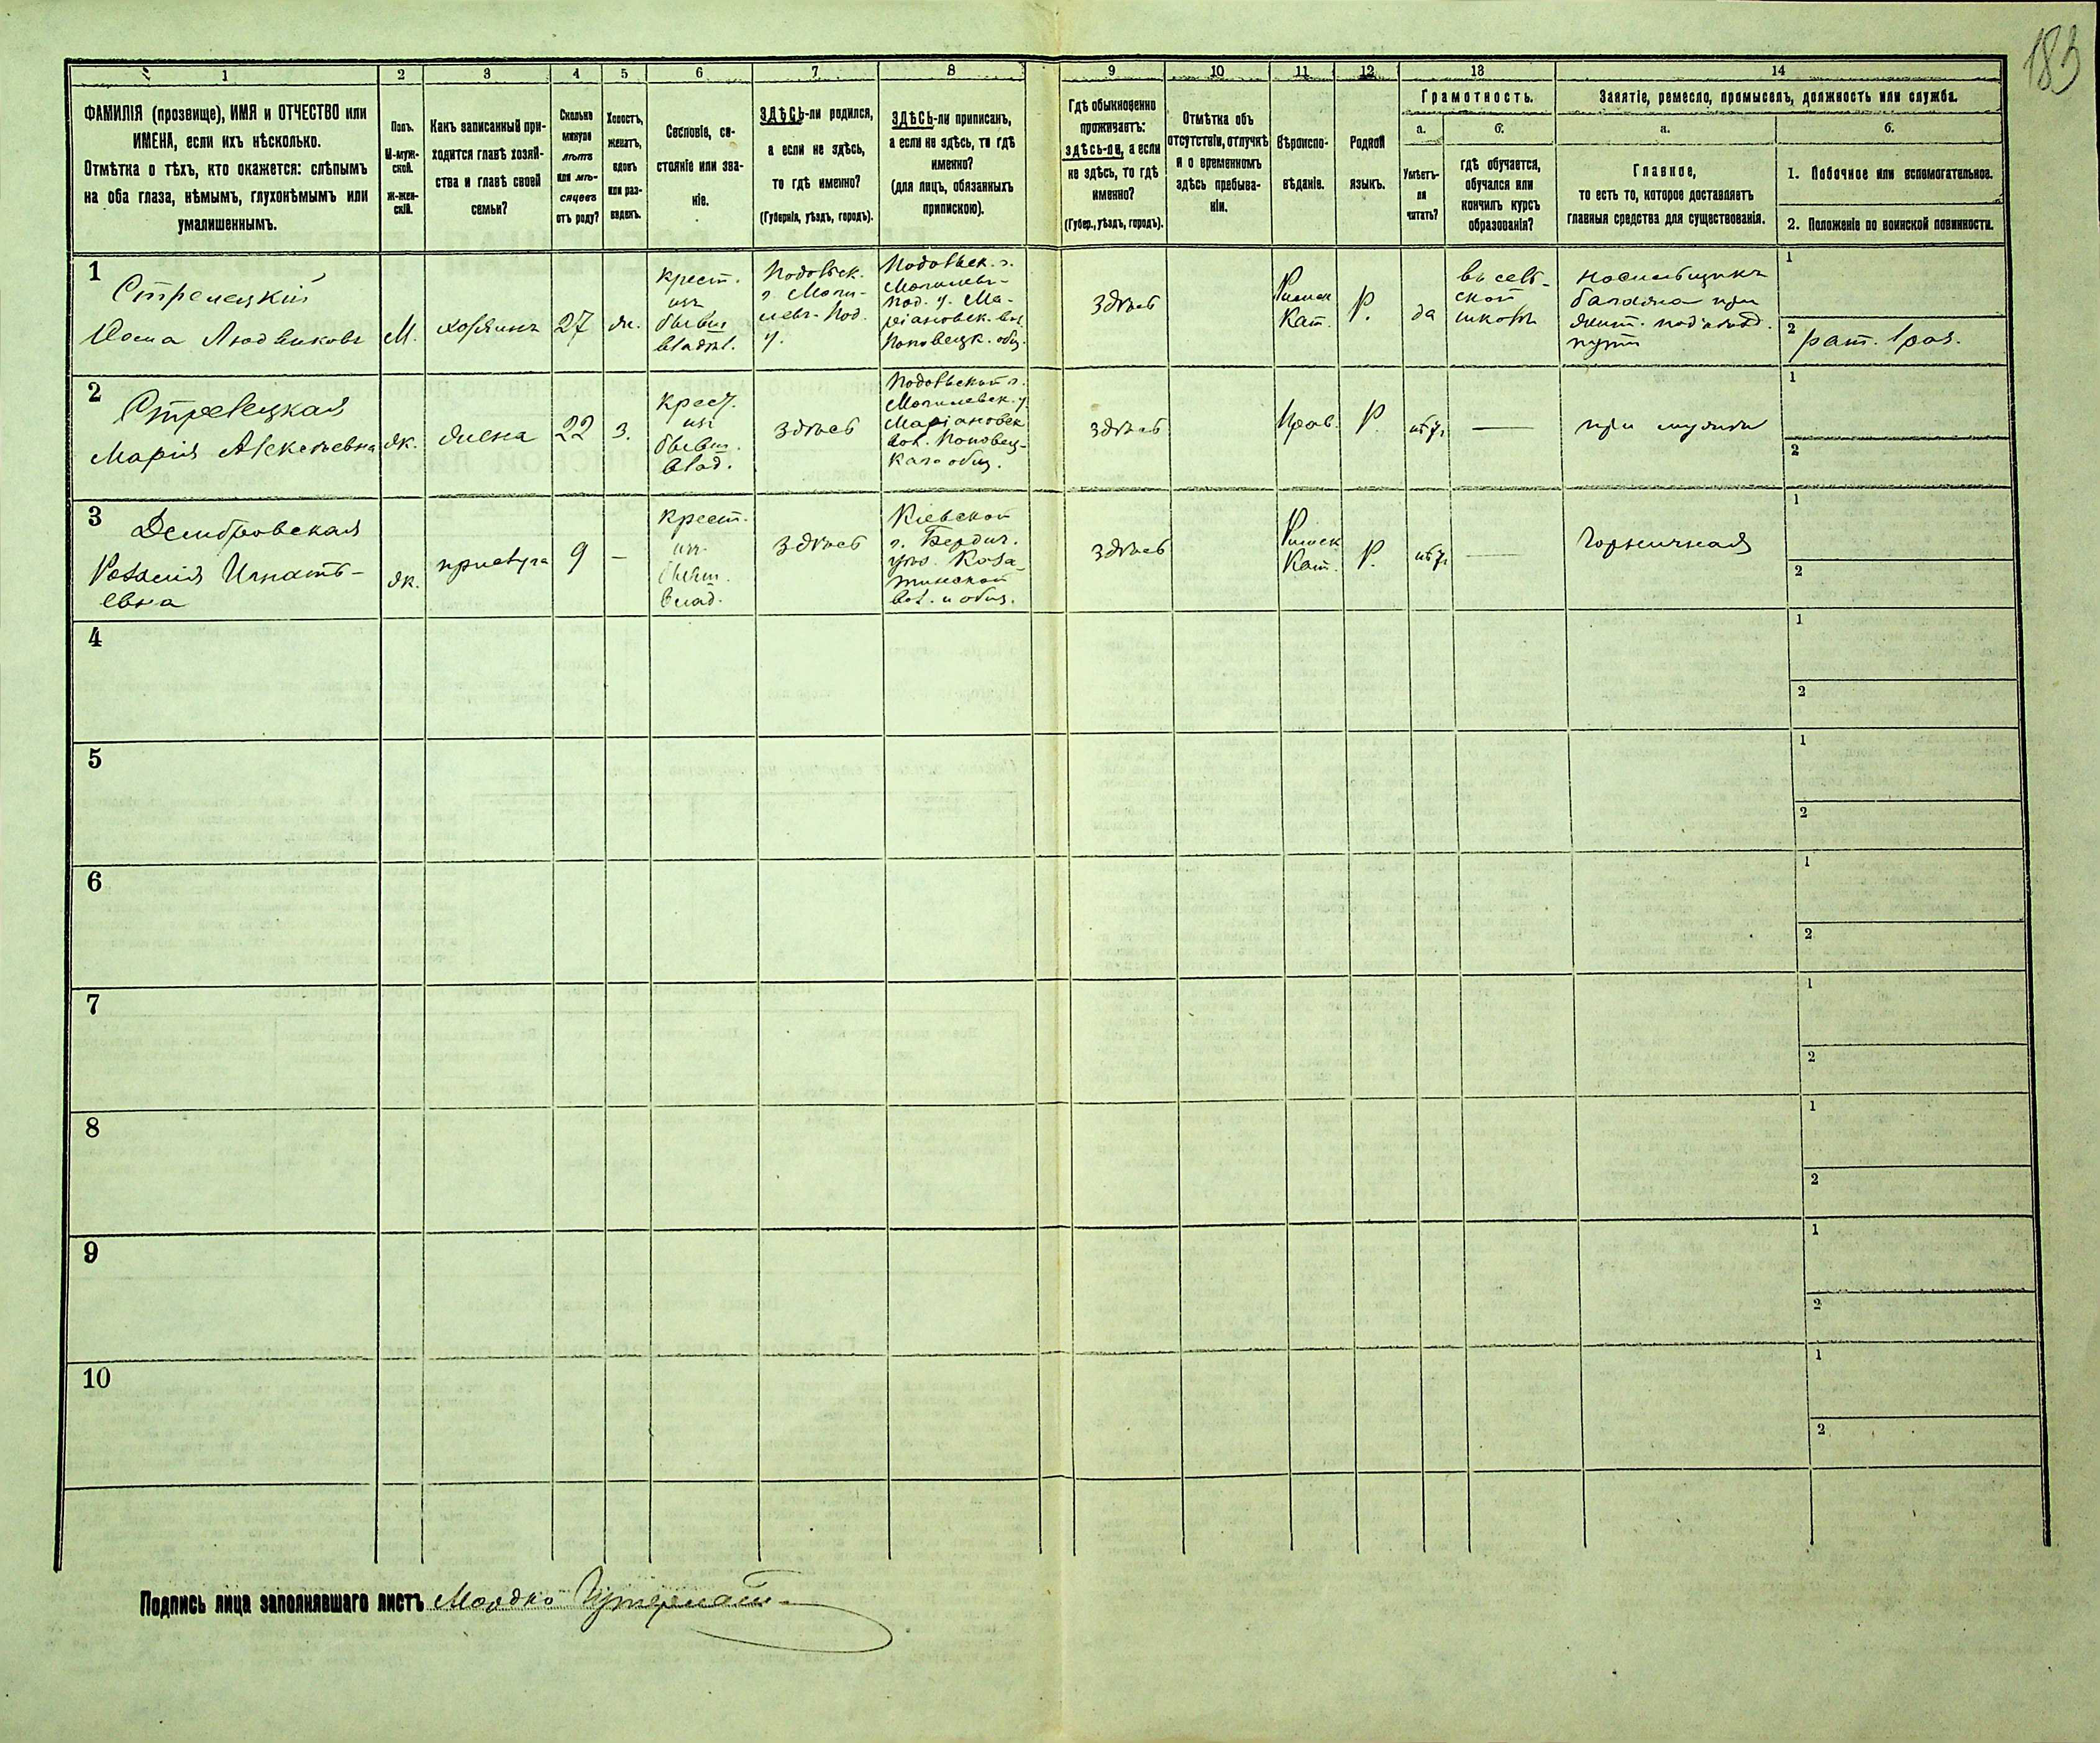 183
1 2 3 4 5 6 7 8 9 10 11 12 13 14
ФАМИЛІЯ (прозвище), ИМЯ и ОТЧЕСТВО или
ИМЕНА, если ихъ нѣсколько.
Отмѣтка о тѣхъ, кто окажется: слѣпымъ
на оба глаза, нѣмымъ, глухонѣмымъ или
умалишеннымъ.
Полъ.
М-муж-
ской.
Ж-жен-
скій.
Какъ записанный при-
ходится главѣ хозяй-
ства и главѣ своей
семьи?
Сколько
минуло
лѣтъ
или мѣ-
сяцевъ
отъ роду?
Холостъ,
женатъ,
вдовъ
или раз-
веденъ.
Сословіе, со-
стояніе или зва-
ніе.
ЗДѢСЬ-ли родился,
а если не здѣсь,
то гдѣ именно?
(Губернія, уѣздъ, городъ).
ЗДѢСЬ-ли приписанъ,
а если не здѣсь, то гдѣ
именно?
(для лицъ, обязанныхъ
припискою).
Гдѣ обыкновенно
проживаетъ:
здѣсь-ли, а если
не здѣсь, то гдѣ
именно?
(Губер., уѣздъ, городъ).
Отмѣтка объ
отсутствіи, отлучкѣ
и о временномъ
здѣсь пребыва-
ніи.
Вѣроиспо-
вѣданіе.
Родной
языкъ.
Грамотность.
а.
Умѣетъ-
ли
читать?
б.
гдѣ обучается,
обучался или
кончилъ курсъ
образованія?
Занятіе, ремесло, промыселъ, должность или служба.
а.
Главное,
то есть то, которое доставляетъ
главныя средства для существованія.
б.
1. Побочное или вспомогательное.
2. Положеніе по воинской повинности.
1
Стрелецкій
Людвиковъ
М.
хозяинъ
27
ж.
крест.
изъ
бывш.
владѣл.
Подольск.
г. Моги-
левъ-Под.
у.
Подольск. г.
Могилевъ-
Под. у. Ма-
ріановск. вол.
Поповецк. общ.
здѣсь
Римск
Кат.
Р.
да
въ сель-
ской
школѣ
носильщикъ
баласта при
пути
1
2 рат. 1 раз.
2
Стрелецкая
Марія Алексѣевна
ж.
жена
22
з.
крест.
изъ
бывш.
влад.
здѣсь
Подольской г.
Могилевск. у.
Маріановск
вол. Поповец-
каго общ.
здѣсь
Прав.
Р.
нѣтъ
—
при мужѣ
1
2
3
Домбровская
Розалія Игнать-
евна
ж.
прислуга
9
—
крест.
изъ
бывш.
влад.
здѣсь
Кіевской
г. Бердич.
уѣз. Коза-
тинской
вол. и общ.
здѣсь
Римск
Кат.
Р.
нѣтъ
—
Горничная
1
2
4
1
2
5
1
2
6
1
2
7
1
2
8
1
2
9
1
2
10
1
2
Подпись лица заполнявшаго листъ Мордко